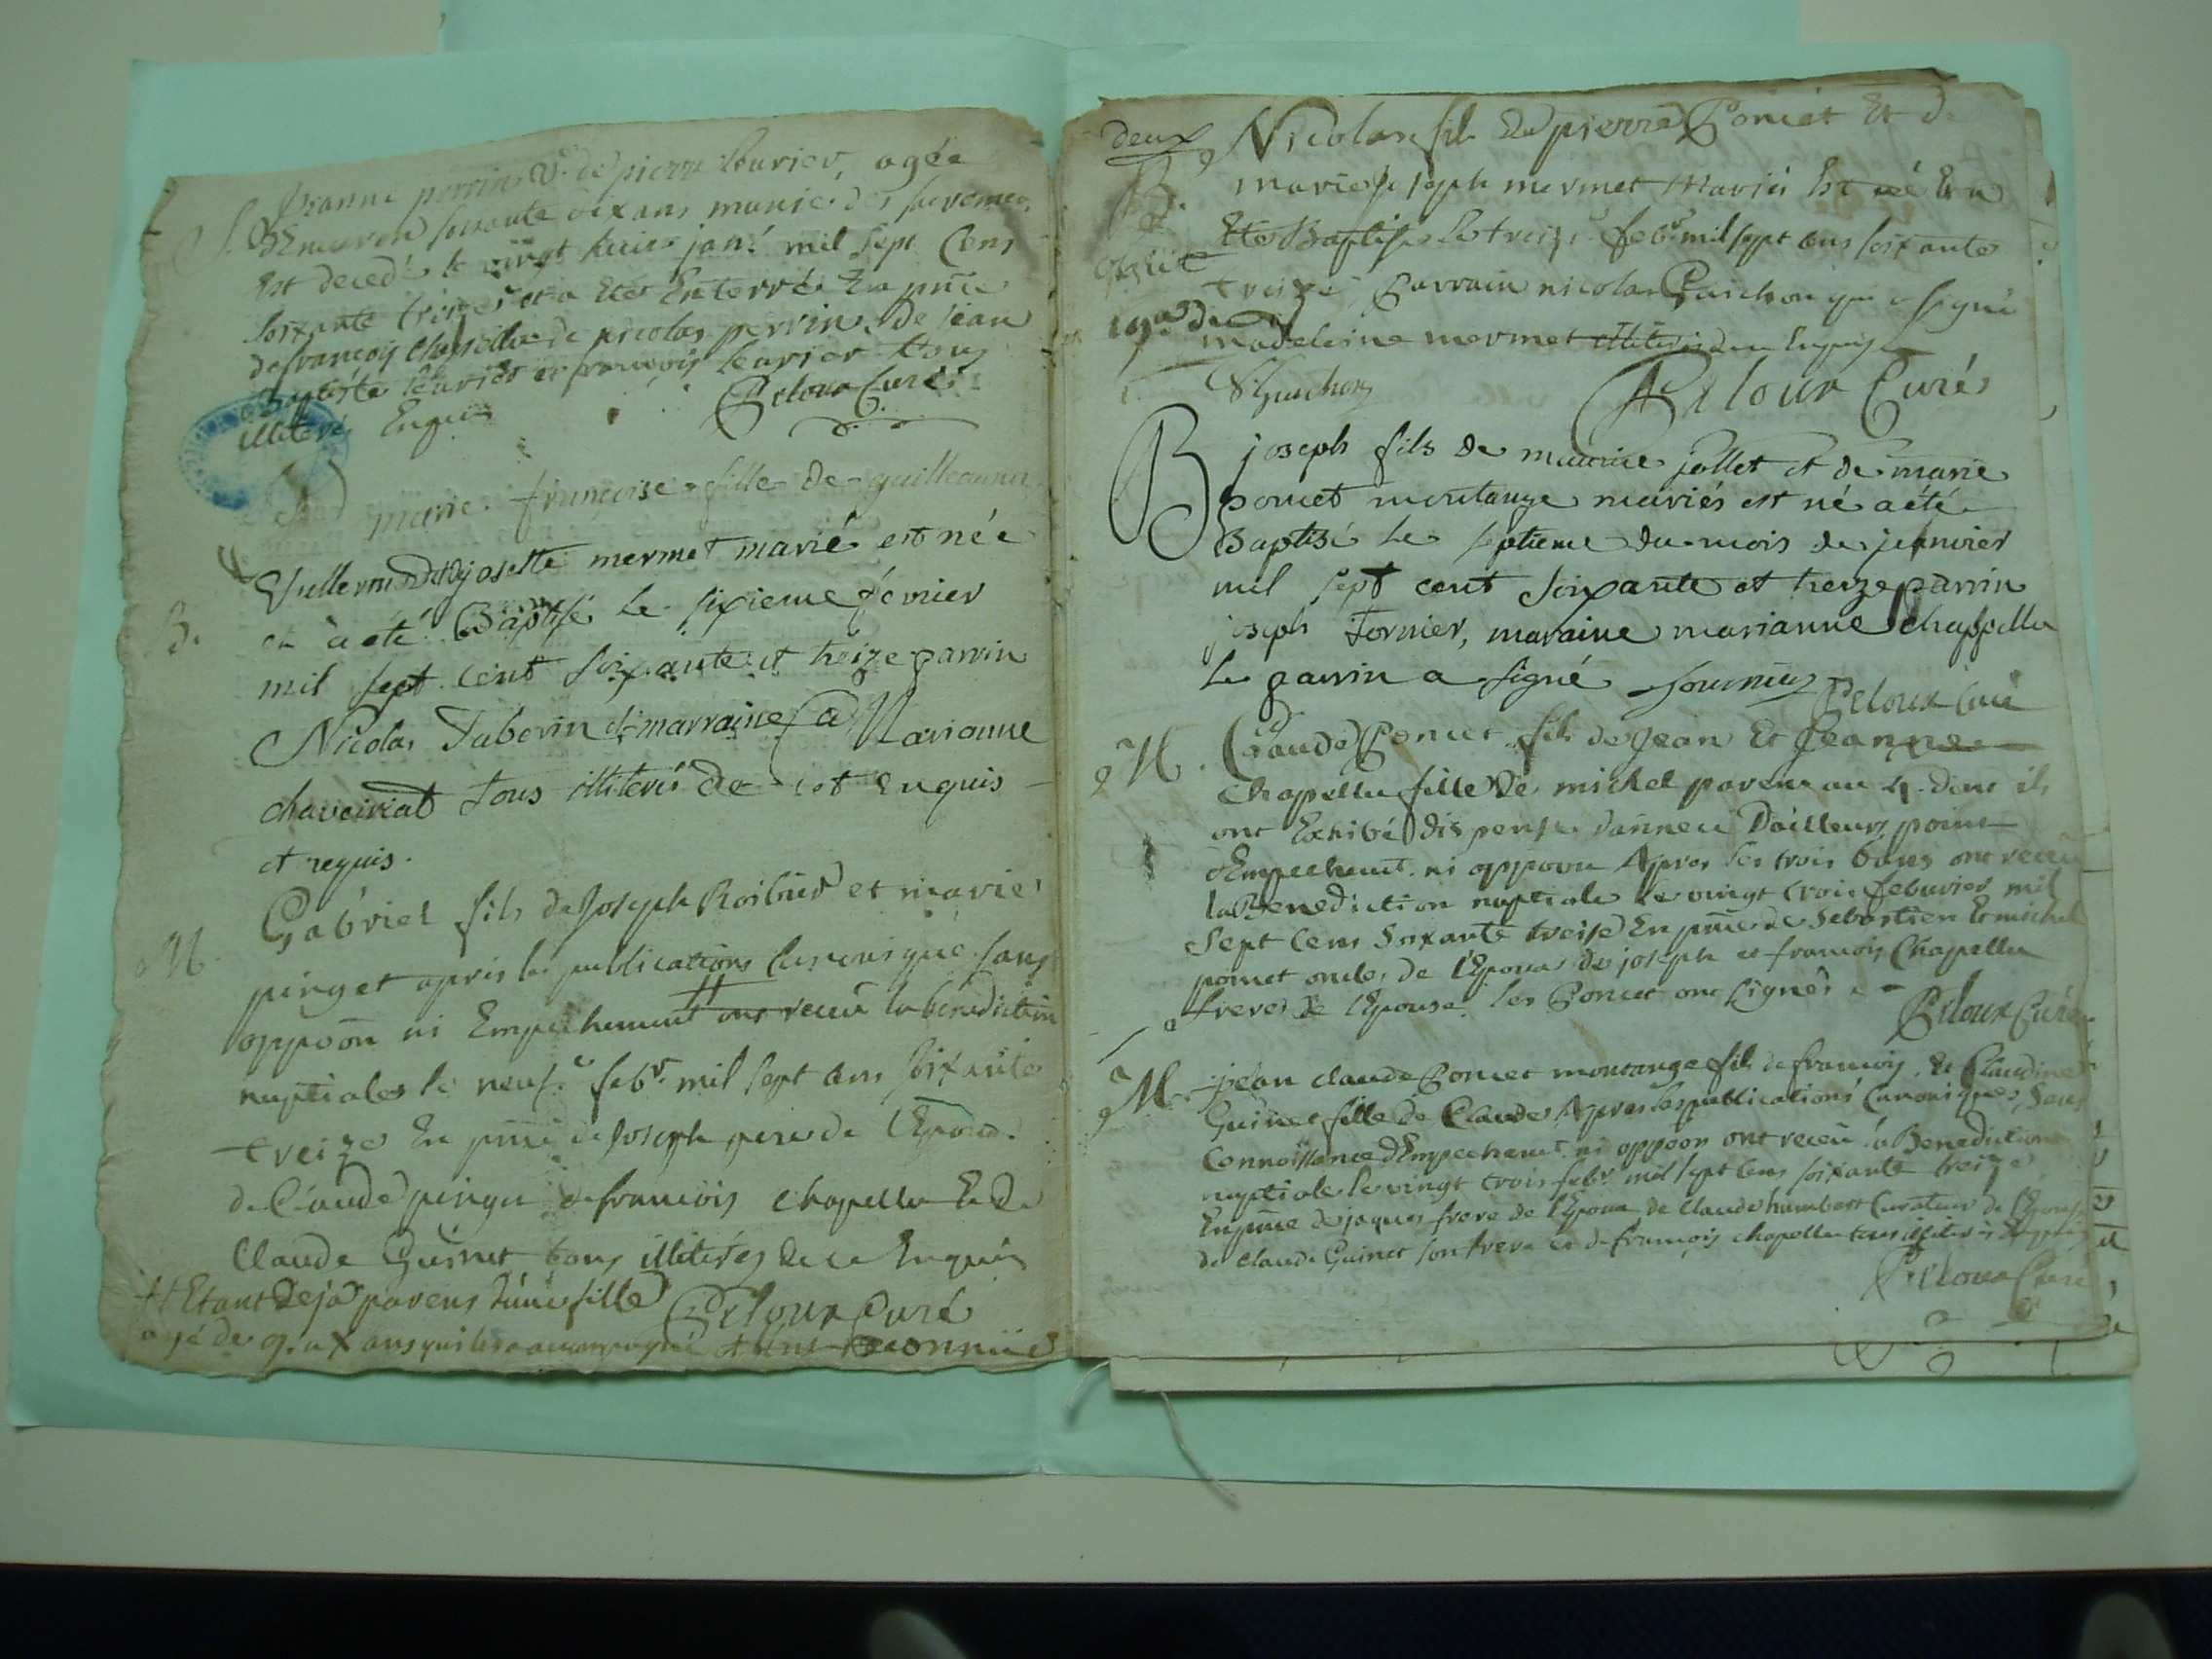 Jeanne perrin Ve de pierre Levrier, agée
S. Environ soixante dix ans munie des sacremens
Est decedé le vingt huit janr mil sept Cens
soixante treize et a Eté Enterrée En pnce
de francois chapellu de nicolas perrin, de jean
Baptiste levrier et francois levrier tous
illiterés Enquis Peloux Curé
marie francoise fille de guilleaume
Vullermoz et de josette mermet marié est née
B. et a été Baptisé le sixieme février
mil sept cent soixante et treize parrin
Nicolas Taborin et marraine Marianne
chaveiriat tous illiterés de ce enquis
et requis.
Gabriel fils de Joseph et marie
M. pinget apres les publications canonique sans
oppoon ni Empechement # ont receu la benediction
nuptiale le neuf febr. mil sept cens soixante
treize En pnce de Joseph pere de l'Epoux
de Claude pinget de francois chapellu Et de
Claude Guinet tous illiterés de ce Enquis
# Etant Deja parens d'une fille Peloux Curé
agé de ans qui les a accompagné et ont reconnüe
deux Nicolas fils De pierre Poncet Et de
B. marie joseph mermet Mariés Est né Et a
Eté Baptisé le treize febr mil sept cens soixante
treize, Parrain nicolas Guichon qui a signé
madeleine mermet illiterée de ce Enquise
N Guichon Peloux Curé
B joseph fils de maurice jollet et de marie
poncet montange mariés est né a été
Baptisé le septieme du mois de jeanvier
mil sept cent soixante et treize parrin
joseph Fornier, maraine marianne chappellu
le parrin a signé fournier Peloux Curé
M. Claude Poncet fils de Jean Et Jeanne
Chapellu fille de michel parens au 4. dont ils
ont Exhibé dispense Dailleurs point
d'Empechemt. ni oppoon Apres les trois bans ont receu
la Benediction nuptiale le vingt trois febvrier mil
Sept Cens Soixante treise En pnce de Sebastien Et michel
poncet oncles de l'Epoux de joseph et francois Chapellu
freres de l'Epouse. les Poncet ont signés Peloux Curé
M. jean claude Poncet montange fils de francois, Et Claudine
Guinet fille de Claude Apres les publications Canoniques, Sans
Connoissance d'Empechemt. ni oppoon ont receu la Benediction
nuptiale le vingt trois febr mil sept cens soixante treize
En pnce de jaques frere de l'Epoux de Claude humbert Curateur de l'Epouse
de Claude Guinet son frere et de francois chapellu tous illiterés Enquis
Peloux Curé